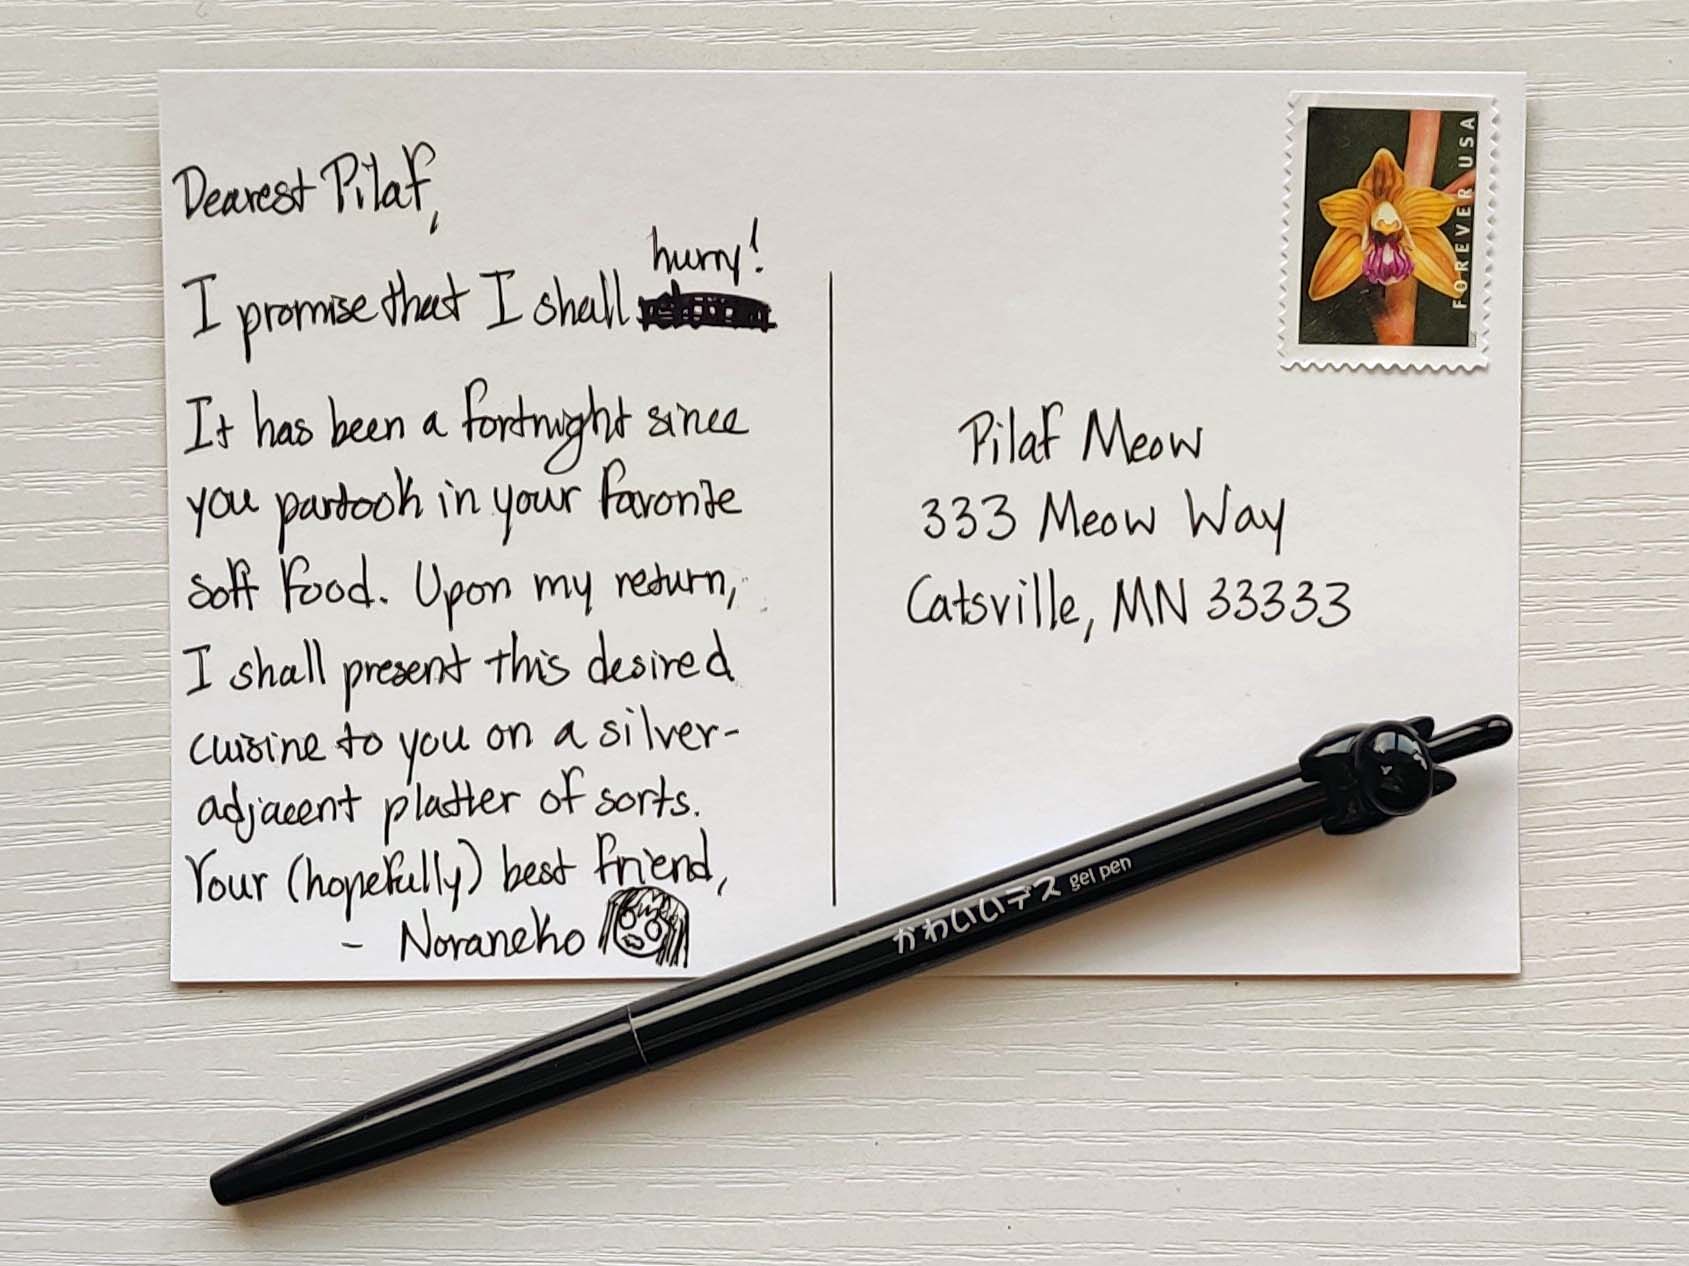 Dearest Pilaf,
I promise that I shall hurry!
It has been a fortnight since
you partook in your favorite
soft food. Upon my return,
I shall present this desired
cuisine to you on a silver-
adjacent platter of sorts.
Your (hopefully) best friend,
- Noraneko
FOREVER USA
Pilaf Meow
333 Meow Way
Catsville, MN 33333
かわいいデス gel pen